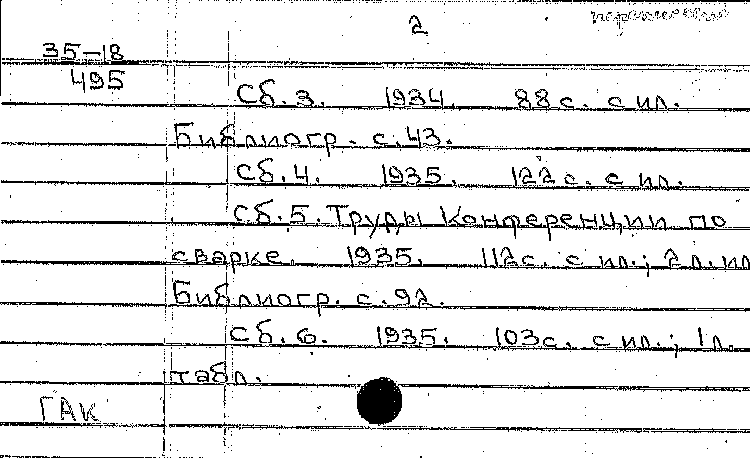 2
35-18
495
Сб. 3. 1934. 88 с. с ил.
Библиогр. с. 43.
Сб. 4. 1935. 122 с. с ил.
Сб. 5. Труды Конференции по
сварке. 1935. 112 с. с ил.; 2 л. ил
Библиогр. с. 92.
Сб. 6. 1935. 103 с. с ил.; 1 л.
табл.
ГАК